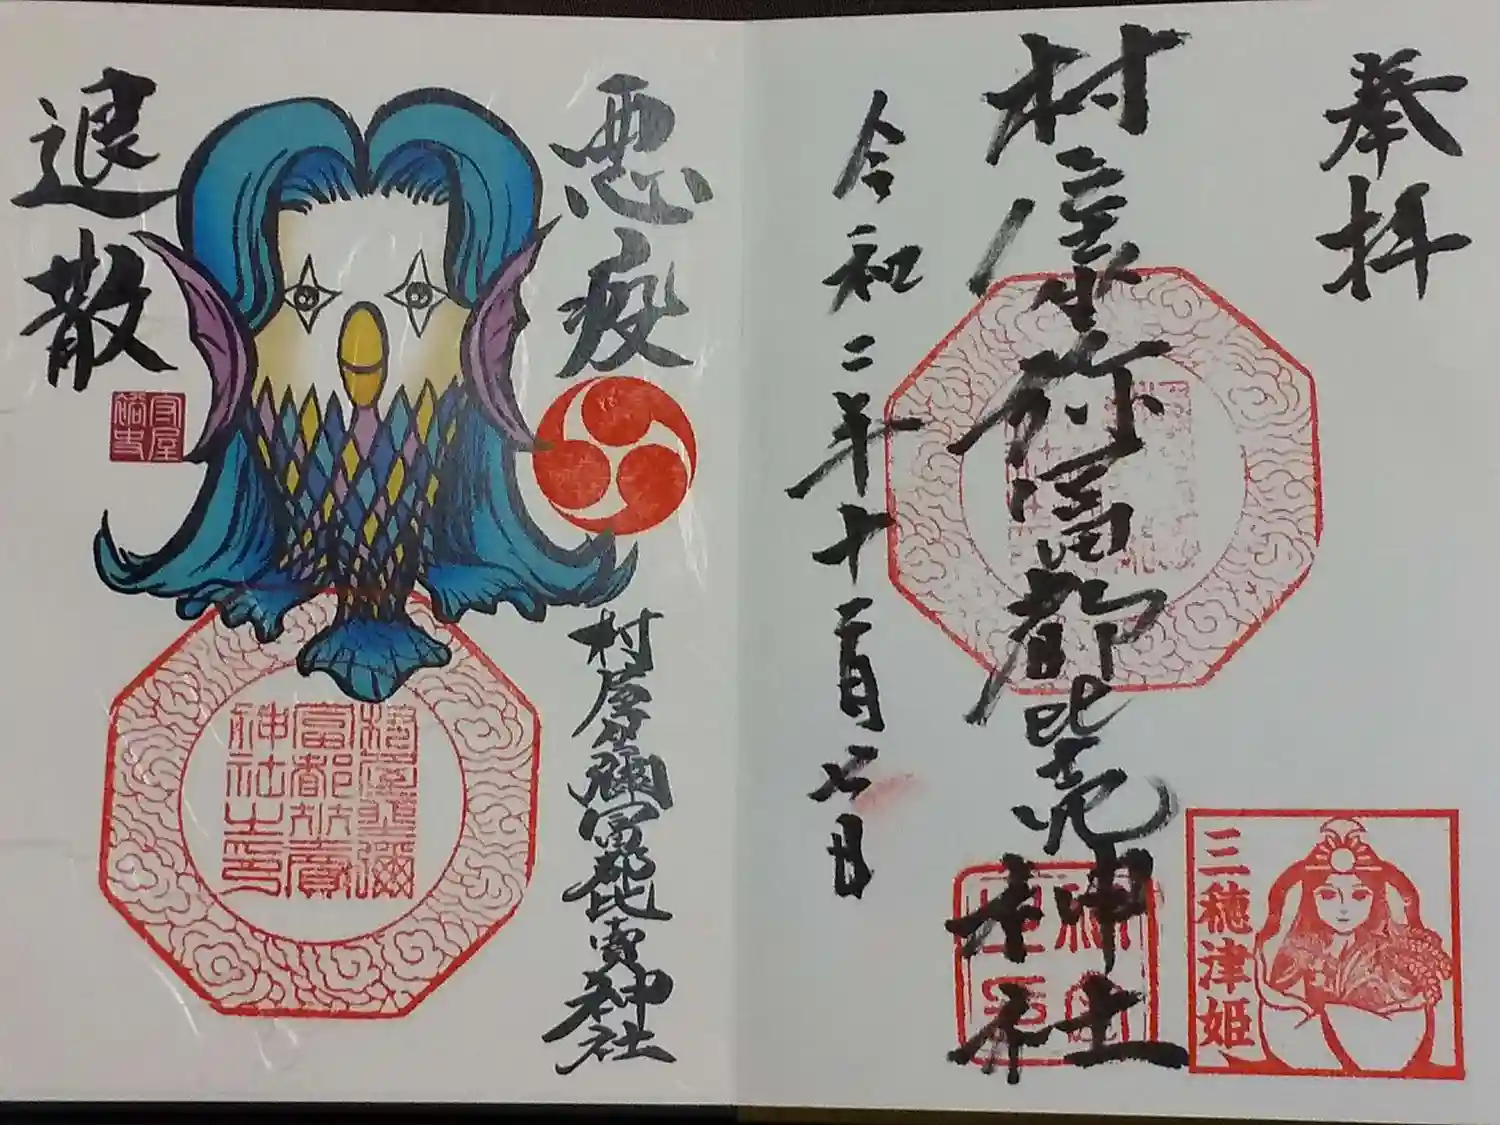 奉拝
村屋坐弥冨都比売神社
令和二年十二月七日
三穂津姫
悪疫
退散
村屋坐彌冨都比賣神社
村屋坐彌
富都比賣
神社之印